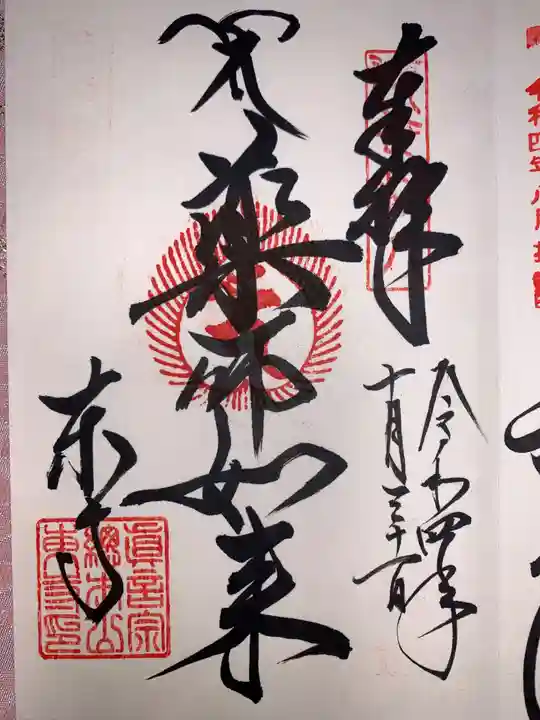 奉拝
令和四年
十月三十一日
薬師如来
東寺
真言宗
総本山
東寺印
令和四年八月